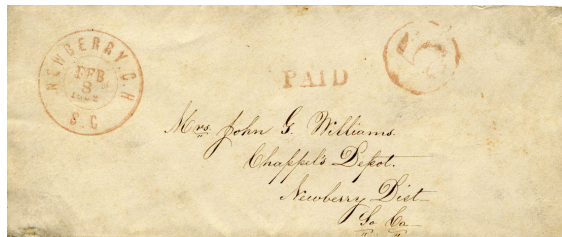 NEWBERRY. C.H
S. C
FEB
8
PAID
5
Mrs. John G. Williams.
Chappel's Depot.
Newberry Dist
So Ca